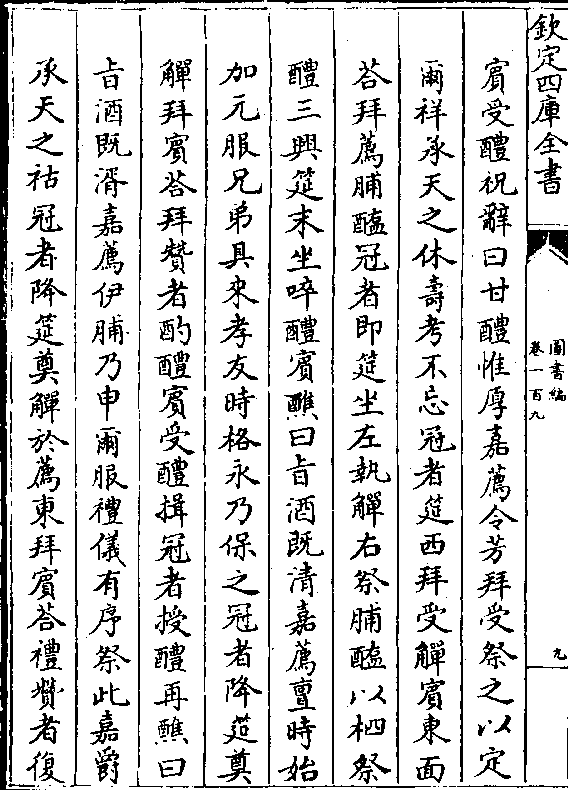 欽定四庫全書
圖書編
卷一百九
九
賓受醴祝辭曰甘醴惟厚嘉薦令芳拜受祭之以定
爾祥承天之休壽考不忘冠者筵西拜受觶賓東面
荅拜薦脯醢冠者即筵坐左執觶右祭脯醢以柶祭
醴三興筵末坐啐醴賓醮曰旨酒既清嘉薦亶時始
加元服兄弟具來孝友時格永乃保之冠者降筵奠
觶拜賓荅拜贊者酌醴賓受醴揖冠者授醴再醮曰
旨酒既湑嘉薦伊脯乃申爾服禮儀有序祭此嘉爵
承天之祜冠者降筵奠觶於薦東拜賓荅禮贊者復